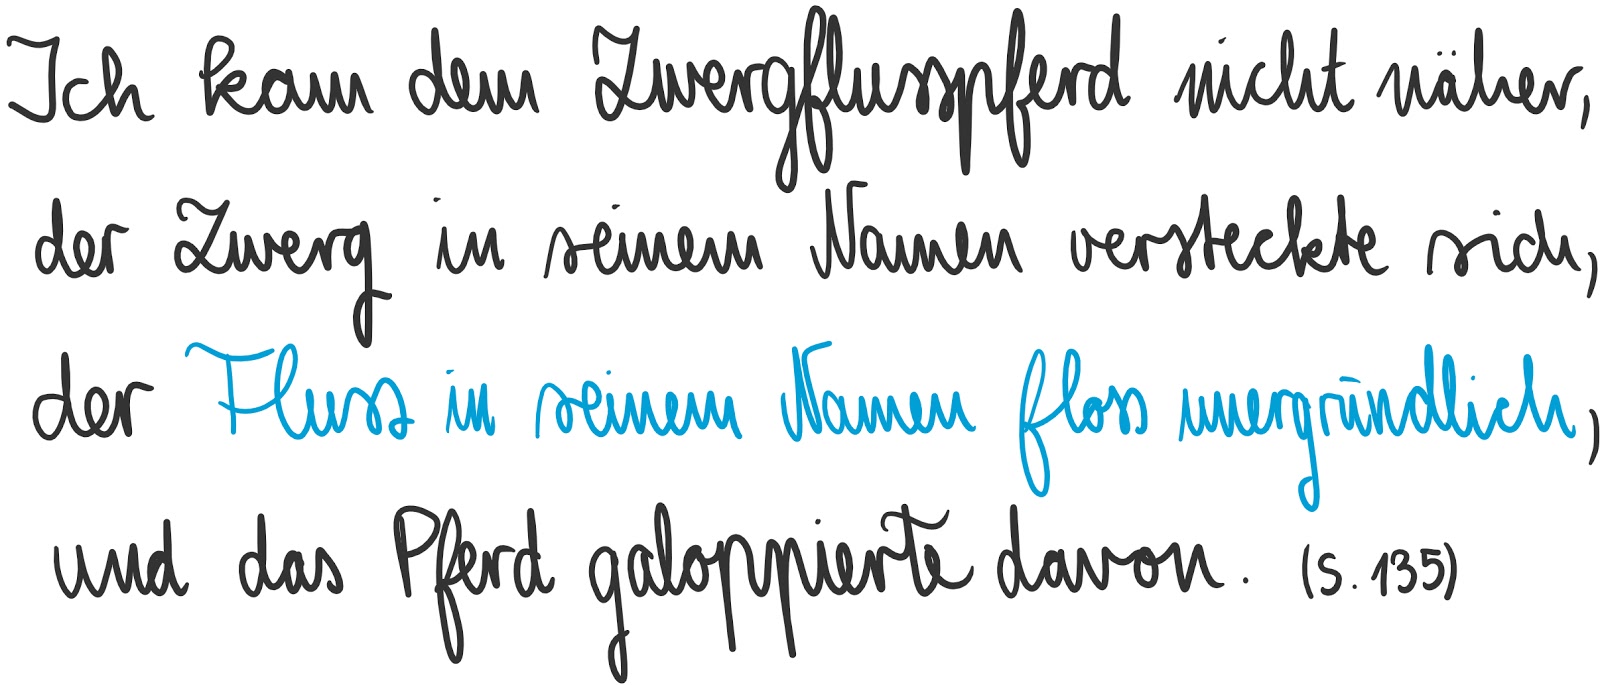 Ich kam dem Zwergflusspferd nicht näher,
der Zwerg in seinem Namen versteckte sich,
der Fluss in seinem Namen floss unergründlich,
und das Pferd galoppierte davon. (S. 135)